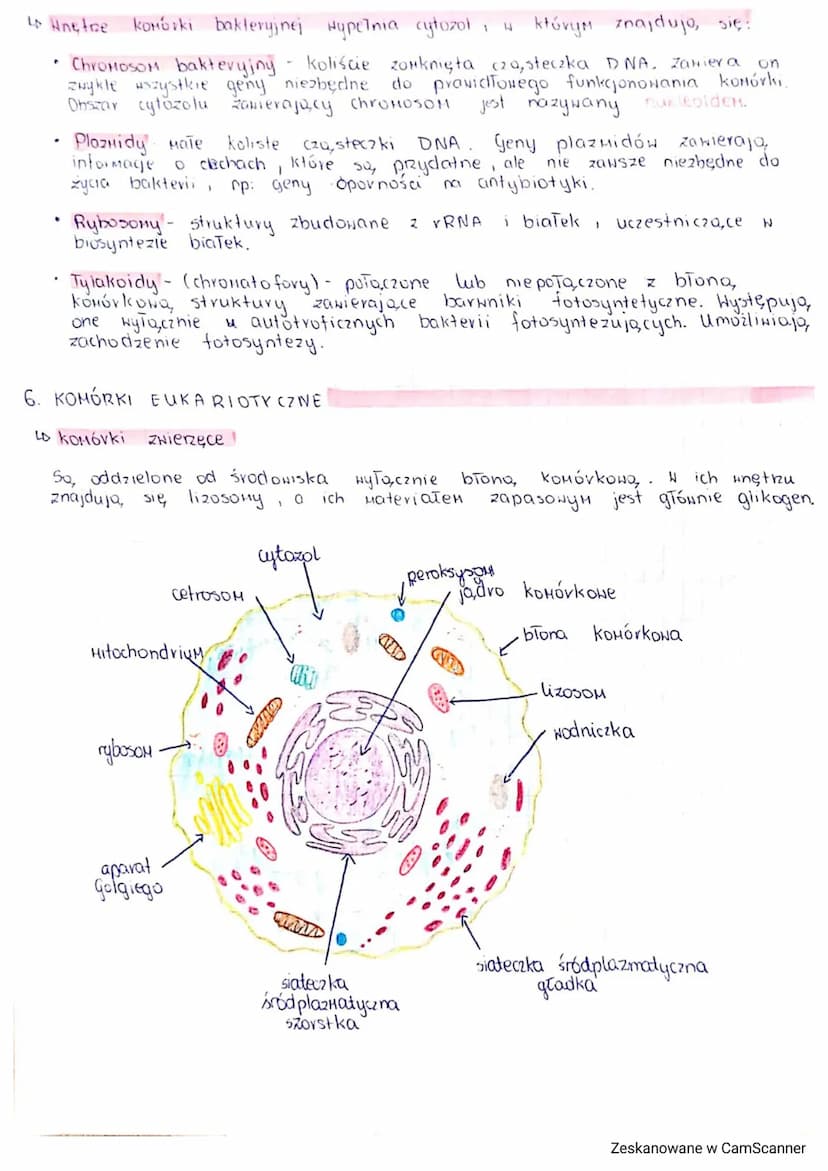 ↳ Wnętrze komórki bakteryjnej wypełnia cytozol, w którym znajdują się:
• Chromosom bakteryjny - koliście zamknięta cząsteczka DNA. Zawiera on
zwykle wszystkie geny niezbędne do prawidłowego funkcjonowania komórki.
Obszar cytozolu zawierający chromosom jest nazywany nukleoidem.
• Plazmidy - małe koliste cząsteczki DNA. Geny plazmidów zawierają
informacje o cechach, które są przydatne, ale nie zawsze niezbędne do
życia bakterii, np: geny oporności na antybiotyki.
• Rybosomy - struktury zbudowane z rRNA i białek, uczestniczące w
biosyntezie białek.
• Tylakoidy - (chromatofory) - połączone lub niepołączone z błoną
komórkową struktury zawierające barwniki fotosyntetyczne. Występują
one wyłącznie u autotroficznych bakterii fotosyntezujących. Umożliwiają
zachodzenie fotosyntezy.
6. KOMÓRKI EUKARIOTYCZNE
↳ komórki zwierzęce
Są oddzielone od środowiska wyłącznie błoną komórkową. W ich wnętrzu
znajdują się lizosomy, a ich materiałem zapasowym jest głównie glikogen.
cytozol
peroksysom
cetrosom
jądro komórkowe
błona komórkowa
mitochondrium
lizosom
wodniczka
rybosom
aparat
Golgiego
siateczka śródplazmatyczna
gładka
siateczka
śródplazmatyczna
szorstka
Zeskanowane w CamScanner